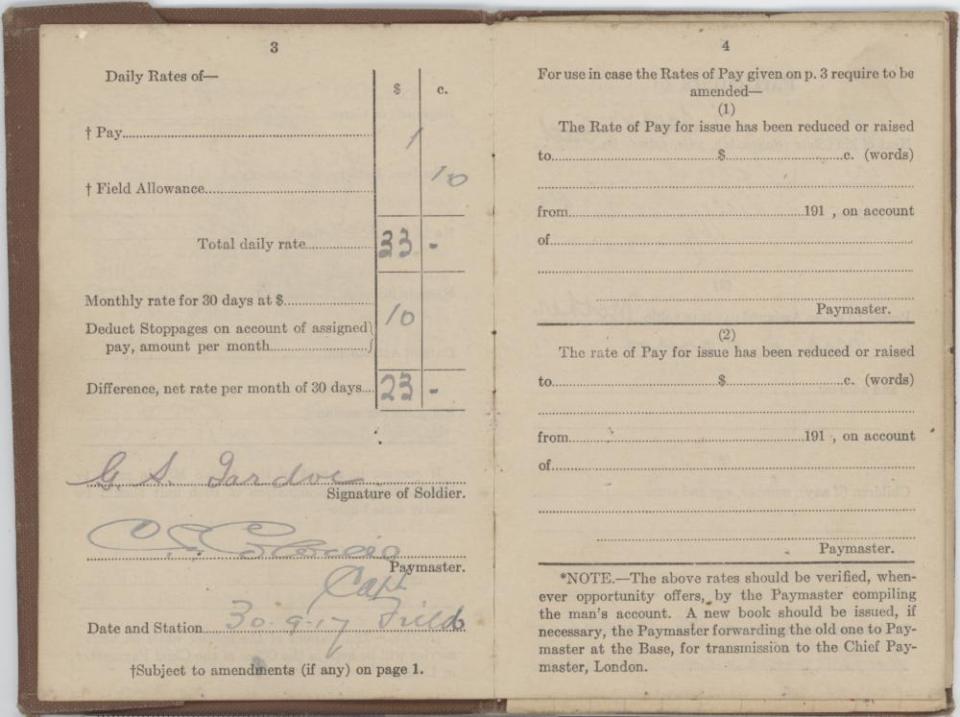 3
Daily Rates of—
$ c.
† Pay 1
† Field Allowance 10
Total daily rate 33 -
Monthly rate for 30 days at $
Deduct Stoppages on account of assigned pay, amount per month 10
Difference, net rate per month of 30 days 23 -
G. S.
Signature of Soldier.
Paymaster.
Capt
Date and Station 30-9-17 Field
†Subject to amendments (if any) on page 1.
4
For use in case the Rates of Pay given on p. 3 require to be
amended—
(1)
The Rate of Pay for issue has been reduced or raised
to $ c. (words)
from 191 , on account
of
Paymaster.
(2)
The rate of Pay for issue has been reduced or raised
to $ c. (words)
from 191 , on account
of
Paymaster.
*NOTE.—The above rates should be verified, when-
ever opportunity offers, by the Paymaster compiling
the man's account. A new book should be issued, if
necessary, the Paymaster forwarding the old one to Pay-
master at the Base, for transmission to the Chief Pay-
master, London.